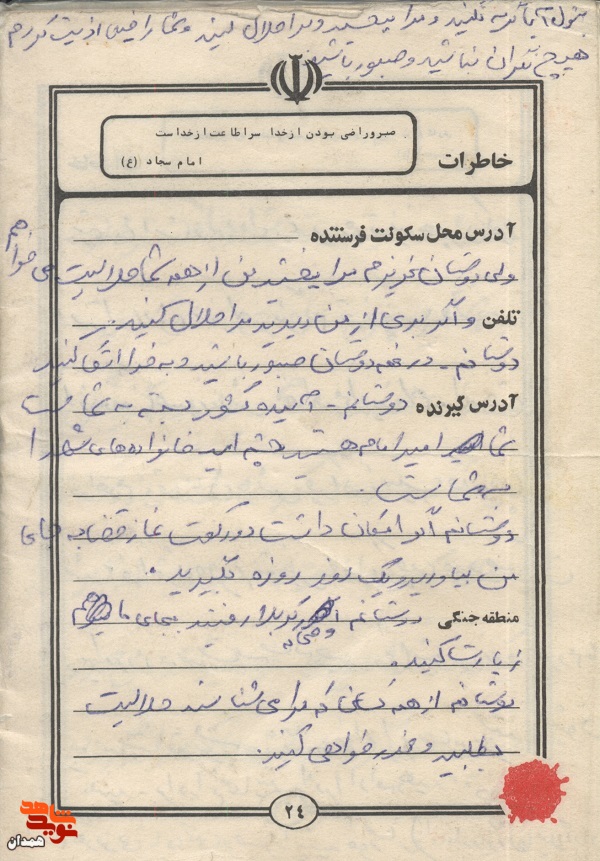 بتول آیا گریه نکنید و مرا ببخشید و مرا حلال کنید و شما را خیلی اذیت کردم
هیچ نگران نباشید و صبور باشید
صبر و راضی بودن از خدا سر اطاعت از خداست
امام سجاد (ع)
خاطرات
آدرس محل سکونت فرستنده
ولی دوستان عزیزم مرا ببخشید من از همه شما حلالیت می خواهم
تلفن و اگر بدی از من دیدید مرا حلال کنید.
دوستانم - در غم دوستان صبور باشید و به خدا اتکا کنید
آدرس گیرنده دوستانم - آینده کشور بسته به شماست
شما امید امام هستید چشم امید خانواده های شهدا
به شماست.
دوستانم اگر امکان داشت دو رکعت نماز قضا به جای
من بیاورید و یک روز روزه بگیرید.
منطقه جنگی دوستانم اگر کربلا رفتید بجای ما هم
زیارت کنید.
دوستانم از همه کسانی که مرا می شناسند حلالیت
بطلبید و عذر خواهی کنید.
٢٤
شاهد
نوید
همدان